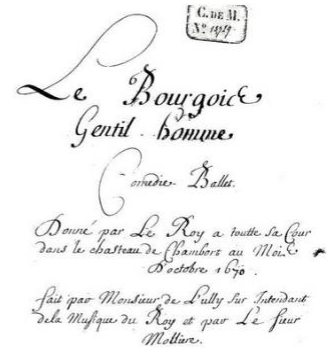 G. DE M.
Nº
Le Bourgoice
Gentil-homme
Comedie-Ballet.
Donné par Le Roy a toutte sa Cour
dans le chasteau de Chambort au Mois
D'octobre 1670.
fait par Monsieur de Lully sur Intendant
dela Musique du Roy et par Le sieur
Molliere.